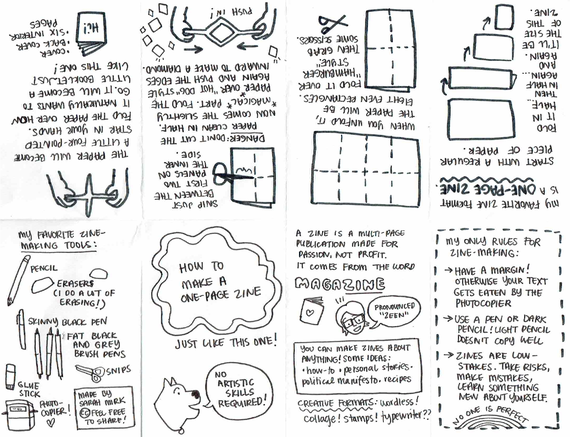 HOW TO
MAKE A
ONE-PAGE ZINE
JUST LIKE THIS ONE!
NO
ARTISTIC
SKILLS
REQUIRED!
A ZINE IS A MULTI-PAGE
PUBLICATION MADE FOR
PASSION, NOT PROFIT.
IT COMES FROM THE WORD
MAGAZINE
PRONOUNCED
"ZEEN"
YOU CAN MAKE ZINES ABOUT
ANYTHING! SOME IDEAS:
•how-to •personal stories•
political manifesto•recipes
CREATIVE FORMATS: wordless!
collage! stamps! typewriter??
MY ONLY RULES FOR
ZINE-MAKING:
→ HAVE A MARGIN!
OTHERWISE YOUR TEXT
GETS EATEN BY THE
PHOTOCOPIER
→ USE A PEN OR DARK
PENCIL! LIGHT PENCIL
DOESN'T COPY WELL
→ ZINES ARE LOW-
STAKES. TAKE RISKS,
MAKE MISTAKES,
LEARN SOMETHING
NEW ABOUT YOURSELF.
NO ONE IS PERFECT
MY FAVORITE ZINE FORMAT
IS A ONE-PAGE ZINE
START WITH A REGULAR
PIECE OF PAPER.
FOLD
IT IN
HALF...
THEN
IN HALF
AGAIN...
AND
AGAIN.
IT'LL BE
THE SIZE
OF THIS
ZINE.
WHEN YOU UNFOLD IT,
THE PAPER WILL BE
EIGHT EVEN RECTANGLES.
FOLD IT OVER
"HAMBURGER
STYLE"
THEN GRAB
SOME
SCISSORS.
SNIP JUST
BETWEEN THE
FIRST TWO
PANELS ON
THE INNER
SIDE.
DANGER: DON'T CUT THE
PAPER CLEAN IN HALF.
NOW COMES THE SLIGHTLY
*MAGICAL* PART. FOLD THE
PAPER OVER "HOT DOG" STYLE
AGAIN AND PUSH THE EDGES
INWARD TO MAKE A DIAMOND.
PUSH IN!
THE PAPER WILL BECOME
A LITTLE FOUR-POINTED
STAR IN YOUR HANDS.
FOLD THE PAPER HOW
IT NATURALLY WANTS TO
GO. IT WILL BECOME A
LITTLE BOOKLET JUST
LIKE THIS ONE!
Hi!
•COVER
•BACK COVER
•SIX INTERIOR.
MY FAVORITE ZINE-
MAKING TOOLS:
PENCIL
ERASERS
(I DO A LOT OF
ERASING!)
SKINNY BLACK PEN
FAT BLACK
AND GREY
BRUSH PENS
GLUE
STICK
SNIPS
PHOTO-
COPIER!
MADE BY
SARAH MIRK
CC FEEL FREE
TO SHARE!